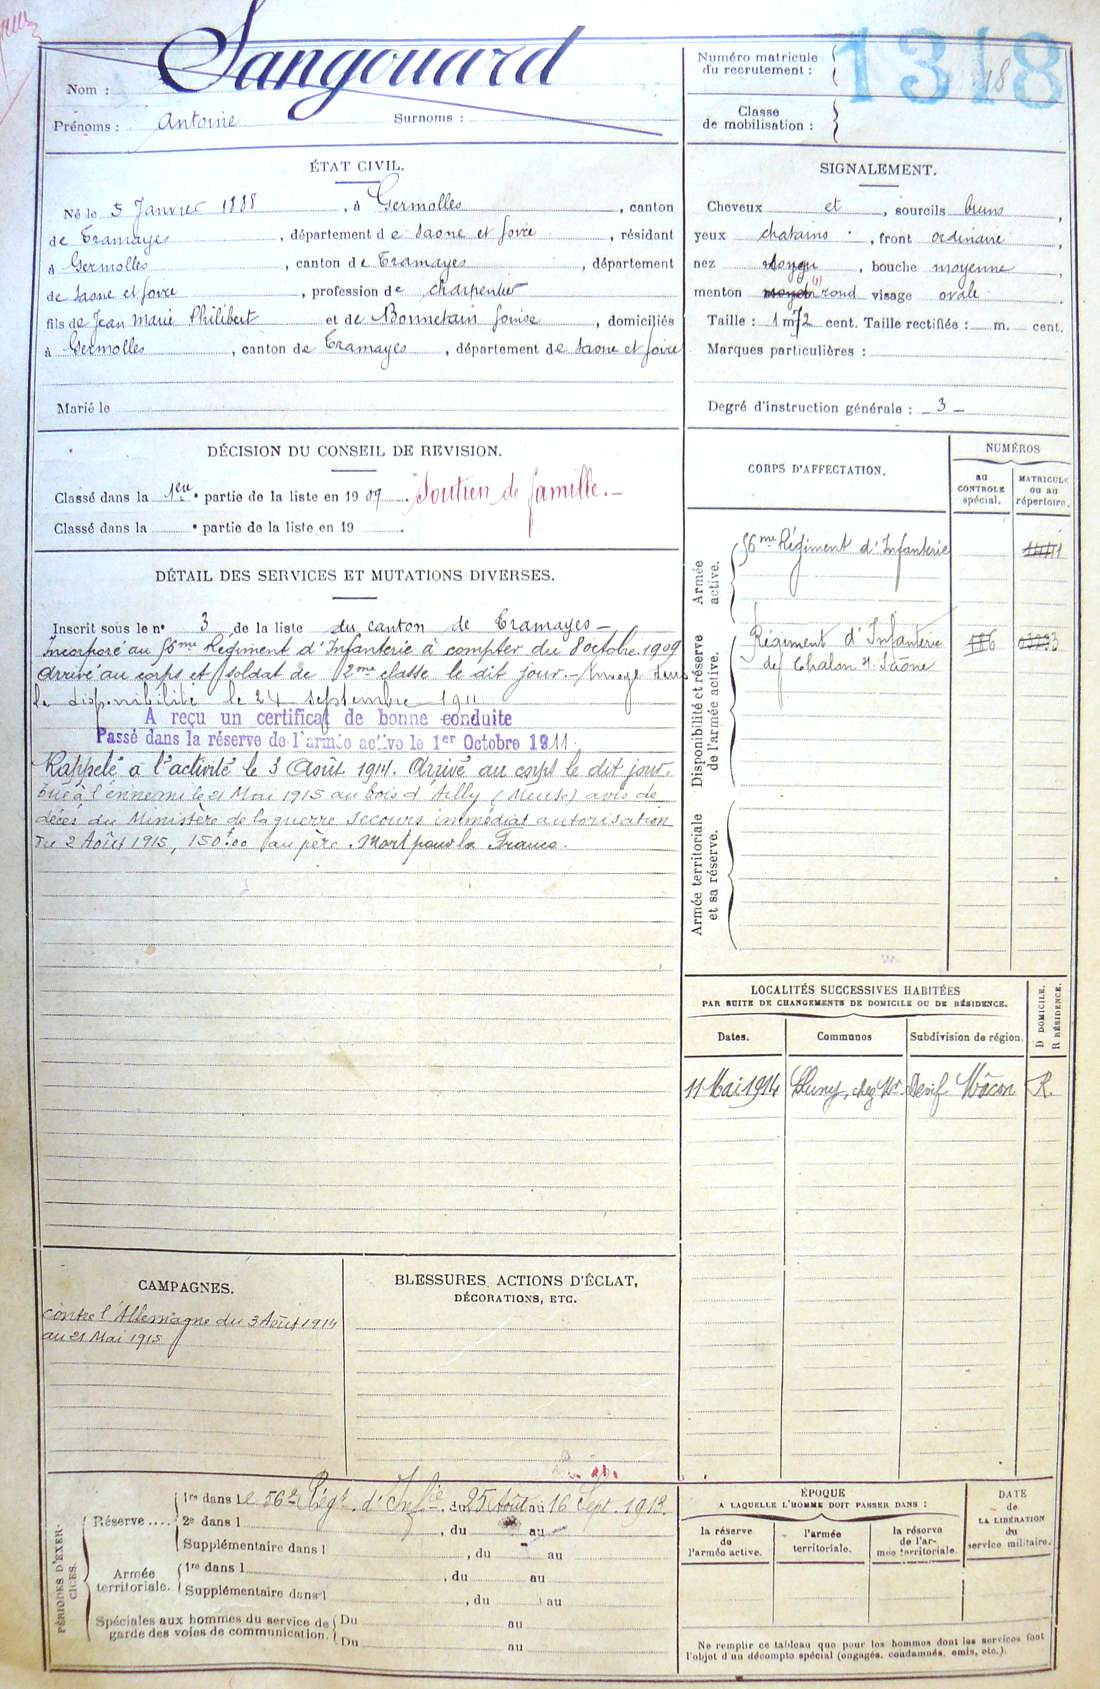 Sangouard
Nom :
Prénoms : Antoine Surnoms :
Numéro matricule
du recrutement :
1318
18
Classe
de mobilisation :
ÉTAT CIVIL.
Né le 5 Janvier 1888, à Germolles, canton
de Tramayes, département de Saone et Loire, résidant
à Germolles, canton de Tramayes, département
de Saone et Loire, profession de charpentier
fils de Jean Marie Philibert et de Bonnetain Louise, domiciliés
à Germolles, canton de Tramayes, département de Saone et Loire
Marié le
SIGNALEMENT.
Cheveux et, sourcils bruns,
yeux chatains, front ordinaire,
nez, bouche moyenne,
menton rond visage ovale
Taille : 1 m 72 cent. Taille rectifiée : m. cent.
Marques particulières :
Degré d'instruction générale : 3
DÉCISION DU CONSEIL DE REVISION.
Classé dans la 1ere partie de la liste en 1909. Soutien de famille.
Classé dans la e partie de la liste en 19
DÉTAIL DES SERVICES ET MUTATIONS DIVERSES.
Inscrit sous le n° 3 de la liste du canton de Tramayes
Incorporé au 56me Régiment d'Infanterie à compter du 8 octobre 1909
Arrivé au corps et soldat de 2me classe le dit jour. - Envoyé dans
la disponibilité le 24 septembre 1911
A reçu un certificat de bonne conduite
Passé dans la réserve de l'armée active le 1er Octobre 1911.
Rappelé à l'activité le 3 Août 1914. Arrivé au corps le dit jour.
Tué à l'ennemi le 21 Mai 1915 au bois d'Ailly (Meuse) avis de
décès du Ministère de la guerre Secours immédiat autorisation
du 2 Août 1915, 150f00 au père. Mort pour la France.
CORPS D'AFFECTATION.
NUMÉROS
au
CONTROLE
spécial.
MATRICULE
ou au
répertoire.
Armée
active.
56me Régiment d'Infanterie
Disponibilité et réserve
de l'armée active.
Régiment d'Infanterie
de Chalon s. Saône
Armée territoriale
et sa réserve.
LOCALITÉS SUCCESSIVES HABITÉES
PAR SUITE DE CHANGEMENTS DE DOMICILE OU DE RÉSIDENCE.
D DOMICILE.
R RÉSIDENCE.
Dates. Communes Subdivision de région.
11 Mai 1914 Cluny, chez Mr Mâcon R.
CAMPAGNES.
Contre l'Allemagne du 3 Août 1914
au 21 Mai 1915
BLESSURES, ACTIONS D'ÉCLAT,
DÉCORATIONS, ETC.
PÉRIODES D'EXER-
CICES.
Réserve ....
1re dans le 56e Régt d'Infie, du 25 Août au 16 Sept. 1913.
2e dans l, du au
Supplémentaire dans l, du au
Armée
territoriale.
1re dans l, du au
Supplémentaire dans l, du au
Spéciales aux hommes du service de
garde des voies de communication.
Du au
Du au
ÉPOQUE
A LAQUELLE L'HOMME DOIT PASSER DANS :
la réserve
de
l'armée active.
l'armée
territoriale.
la réserve
de l'ar-
mée territoriale.
DATE
de
LA LIBÉRATION
du
service militaire.
Ne remplir ce tableau que pour les hommes dont les services font
l'objet d'un décompte spécial (engagés, condamnés, omis, etc.).